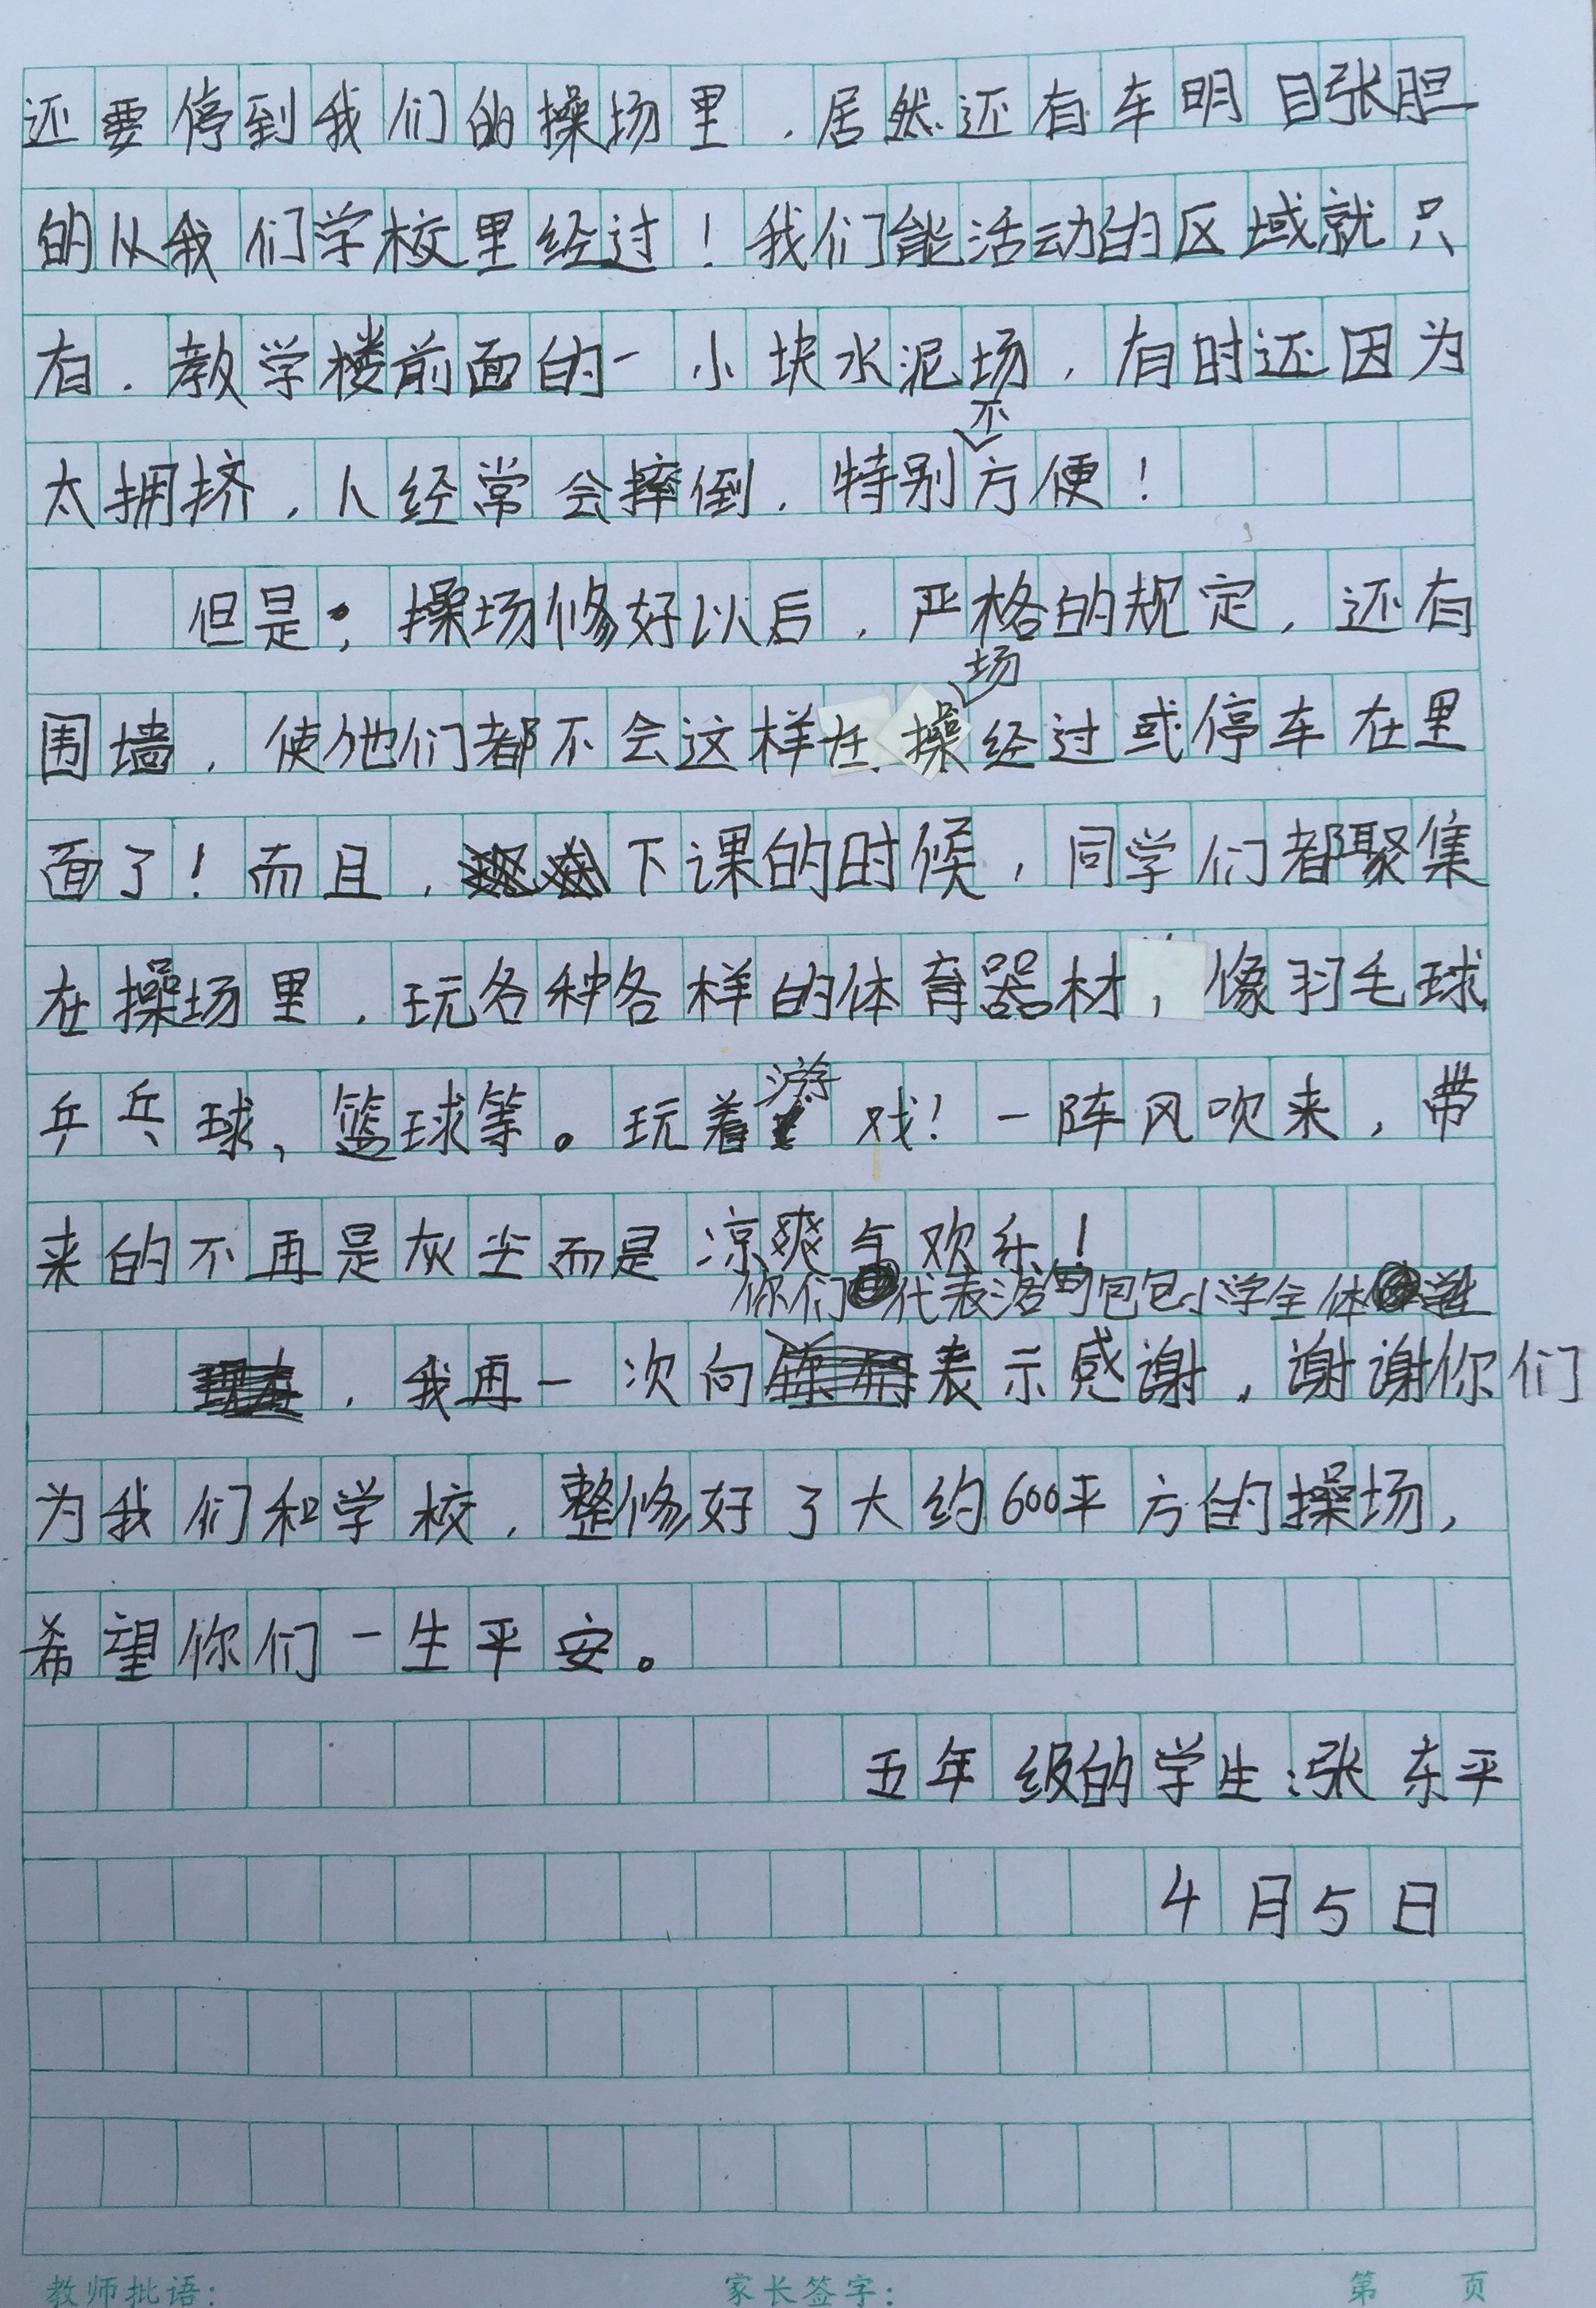 还要停到我们的操场里，居然还有车明目张胆
的从我们学校里经过！我们能活动的区域就只
有，教学楼前面的一小块水泥场，有时还因为
太拥挤，人经常会摔倒，特别不方便！
但是，操场修好以后，严格的规定，还有
围墙，使他们都不会这样在操场经过或停车在里
面了！而且，下课的时候，同学们都聚集
在操场里，玩各种各样的体育器材，像羽毛球
乒乓球、篮球等。玩着游戏！一阵风吹来，带
来的不再是灰尘而是凉爽与欢乐！
你们代表洛包包小学全体
，我再一次向表示感谢，谢谢你们
为我们和学校，整修好了大约600平方的操场，
希望你们一生平安。
五年级的学生：张东平
4月5日
教师批语：
家长签字：
第 页